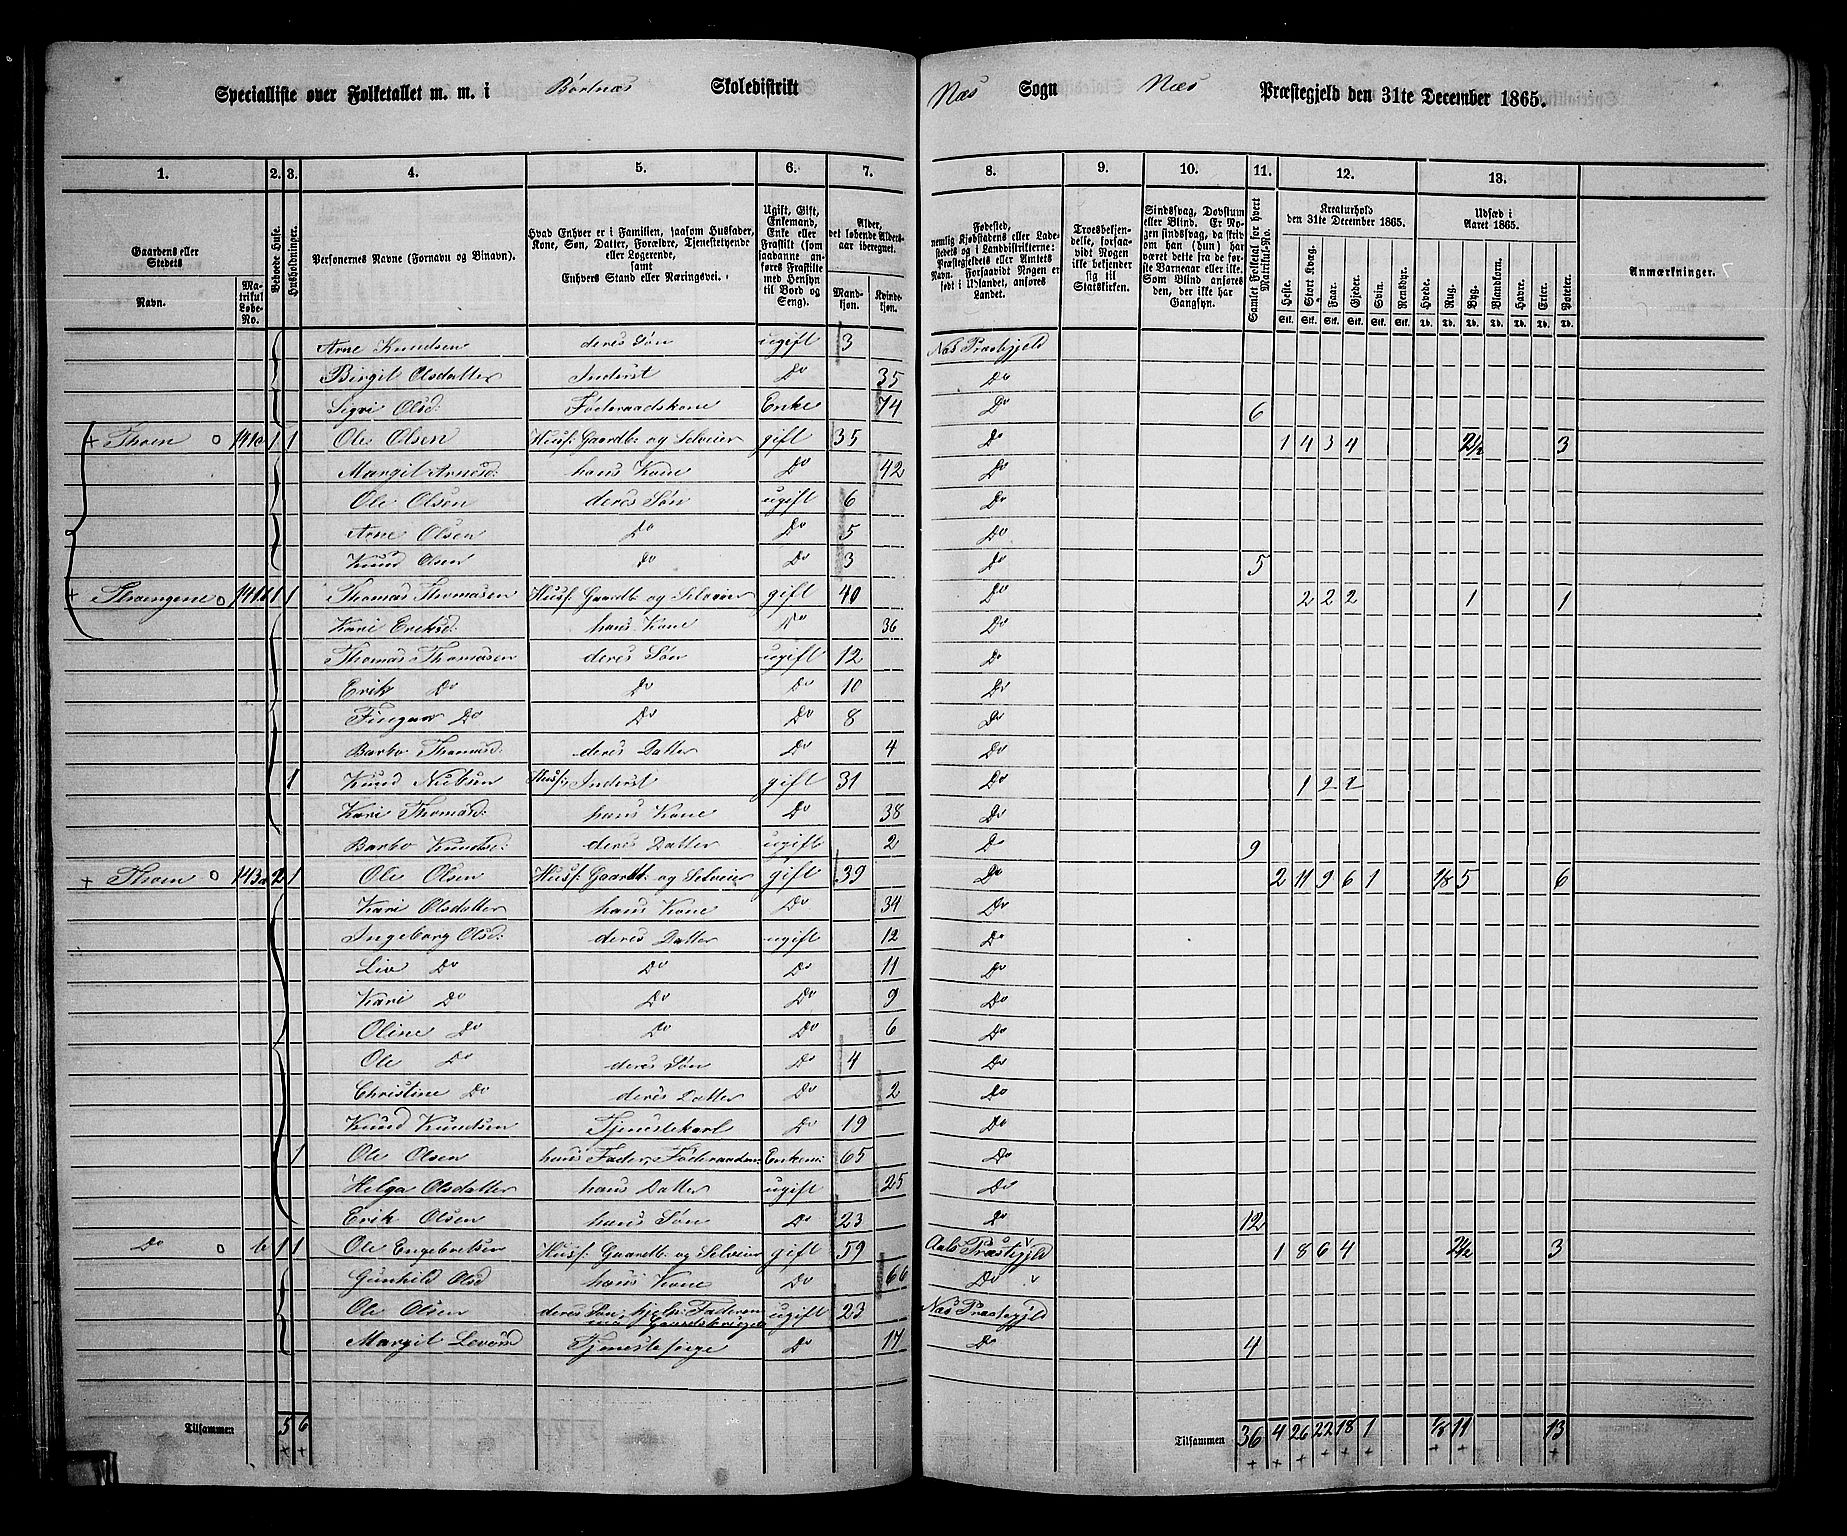 Specialliste over Folketallet m. m. i Børtnæs Skoledistrikt Næs Sogn Næs Præstegjeld den 31te December 1865.
1. 2. 3. 4. 5. 6. 7. 8. 9. 10. 11. 12. 13.
Gaardens eller Stedets
Navn.
Matrikul Løbe-No.
Beboede Huse.
Husholdninger.
Personernes Navne (Fornavn og Binavn).
Hvad Enhver er i Familien, saasom Husfader, Kone, Søn, Datter, Forældre, Tjenestetyende eller Logerende, samt Enhvers Stand eller Næringsvei.
Ugift, Gift, Enkemand, Enke eller Fraskilt (som saadanne anføres Fraskilte med Hensyn til Bord og Seng).
Alder, det løbende Alders-aar iberegnet.
Mandkjøn. Kvindekjøn.
Fødested, nemlig Kjøbstadens eller Ladestedets og i Landdistrikterne: Præstegjeldets eller Amtets Navn. Forsaavidt Nogen er født i Udlandet, anføres Landet.
Troesbekjendelse, forsaavidt Nogen ikke bekjender sig til Statskirken.
Sindssvag, Døvstum eller Blind. Er Nogen sindssvag, da skrives om han (hun) har været dette fra de første Barneaar eller ikke. Som Blind anføres den, der ikke har Gangsyn.
Samlet Folketal for hvert Matrikul-No.
Kreaturhold den 31te December 1865.
Heste. Stort Kvæg. Faar. Gjeder. Svin. Rensdyr.
Stk. Stk. Stk. Stk. Stk. Stk.
Udsæd i Aaret 1865.
Hvede. Rug. Byg. Blandkorn. Havre. Erter. Poteter.
Td. Td. Td. Td. Td. Td. Td.
Anmærkninger.
Arne Knudsen deres Søn ugift 3 Næs Præstegjeld
Birgit Olsdatter Inderst Do 35 Do
Sigri Olsd: Føderaadskone Enke 74 Do 6
+ Thoen o 141a 1 1 Ole Olsen Husf: Gaardb: og Selveier gift 35 Do 1 4 3 4 2½ 3
Margit Arnesd: hans Kone Do 42 Do
Ole Olsen deres Søn ugift 6 Do
Arne Olsen Do Do 5 Do
Knud Olsen Do Do 3 Do 5
+ Thoengene o 1 1 Thomas Thomasen Husf: Gaardb: og Selveier gift 40 Do 2 2 2 1 1
Kari Eriksd: hans Kone Do 36 Do
Thomas Thomasen deres Søn ugift 12 Do
Erik Do Do Do 10 Do
Fingar Do Do Do 8 Do
Barbo Thomasd: deres Datter Do 4 Do
1 Knud Nielsen Husf: Inderst gift 31 Do 1 2 2
Kari Thomasd: hans Kone Do 38 Do
Barbo Knudsd: deres Datter ugift 2 Do 9
+ Thoen o 143a 2 1 Ole Olsen Husf: Gaardb: og Selveier gift 39 Do 2 11 9 6 1 1/8 5 6
Kari Olsdatter hans Kone Do 34 Do
Ingeborg Olsd: deres Datter ugift 12 Do
Liv Do Do Do 11 Do
Kari Do Do Do 9 Do
Oline Do Do Do 6 Do
Ole Do deres Søn Do 4 Do
Christine Do deres Datter Do 2 Do
Knud Knudsen Tjenestekarl Do 19 Do
1 Ole Olsen hans Fader, Føderaadsm: Enkem: 65 Do
Helga Olsdatter hans Datter ugift 25 Do
Erik Olsen hans Søn Do 23 Do 12
Do o b 1 1 Ole Engebretsen Husf: Gaardb: og Selveier gift 59 Aals Præstegjeld 1 8 6 4 2½ 3
Gunhild Olsd hans Kone Do 66 Do
Ole Olsen deres Søn, hjelp: Faderen ugift 23 Næs Præstegjeld
Margit Tjenestepige Do 17 Do 4
Tilsammen 5 6 Tilsammen 36 4 26 22 18 1 1/8 11 13
+ + + + + + + + + + +